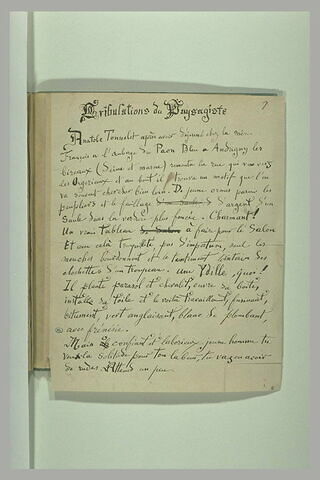 Tribulations du Paysagiste
Anatole Tonnelet après avoir déjeuné chez la mère
François à l'auberge du Paon Bleu à Andrezy les
bizeaux (Seine et marne) remonta la rue qui va vers
les et au bout il trouva un motif que l'on
va souvent chercher bien loin. De jeunes ormes parmi les
peupliers et le feuillage d'argent d'un
saule dans la verdure plus foncée. Charmant!
Un vrai tableau à faire pour le Salon
Et avec cela tranquille, pas d'importuns, seul les
mouches bourdonnent et le tintement lointain des
clochettes d'un troupeau. une Idylle, quoi!
Il plante parasol et chevalet, ouvre sa boîte,
installe sa toile et le voilà travaillant, fumivant,
bitumant, vert anglaisant, blanc de plombant
avec frénésie.
Mais confiant et laborieux jeune homme tu
veux la solitude pour ton labeur, tu vas en avoir
de rudes. Attend un peu